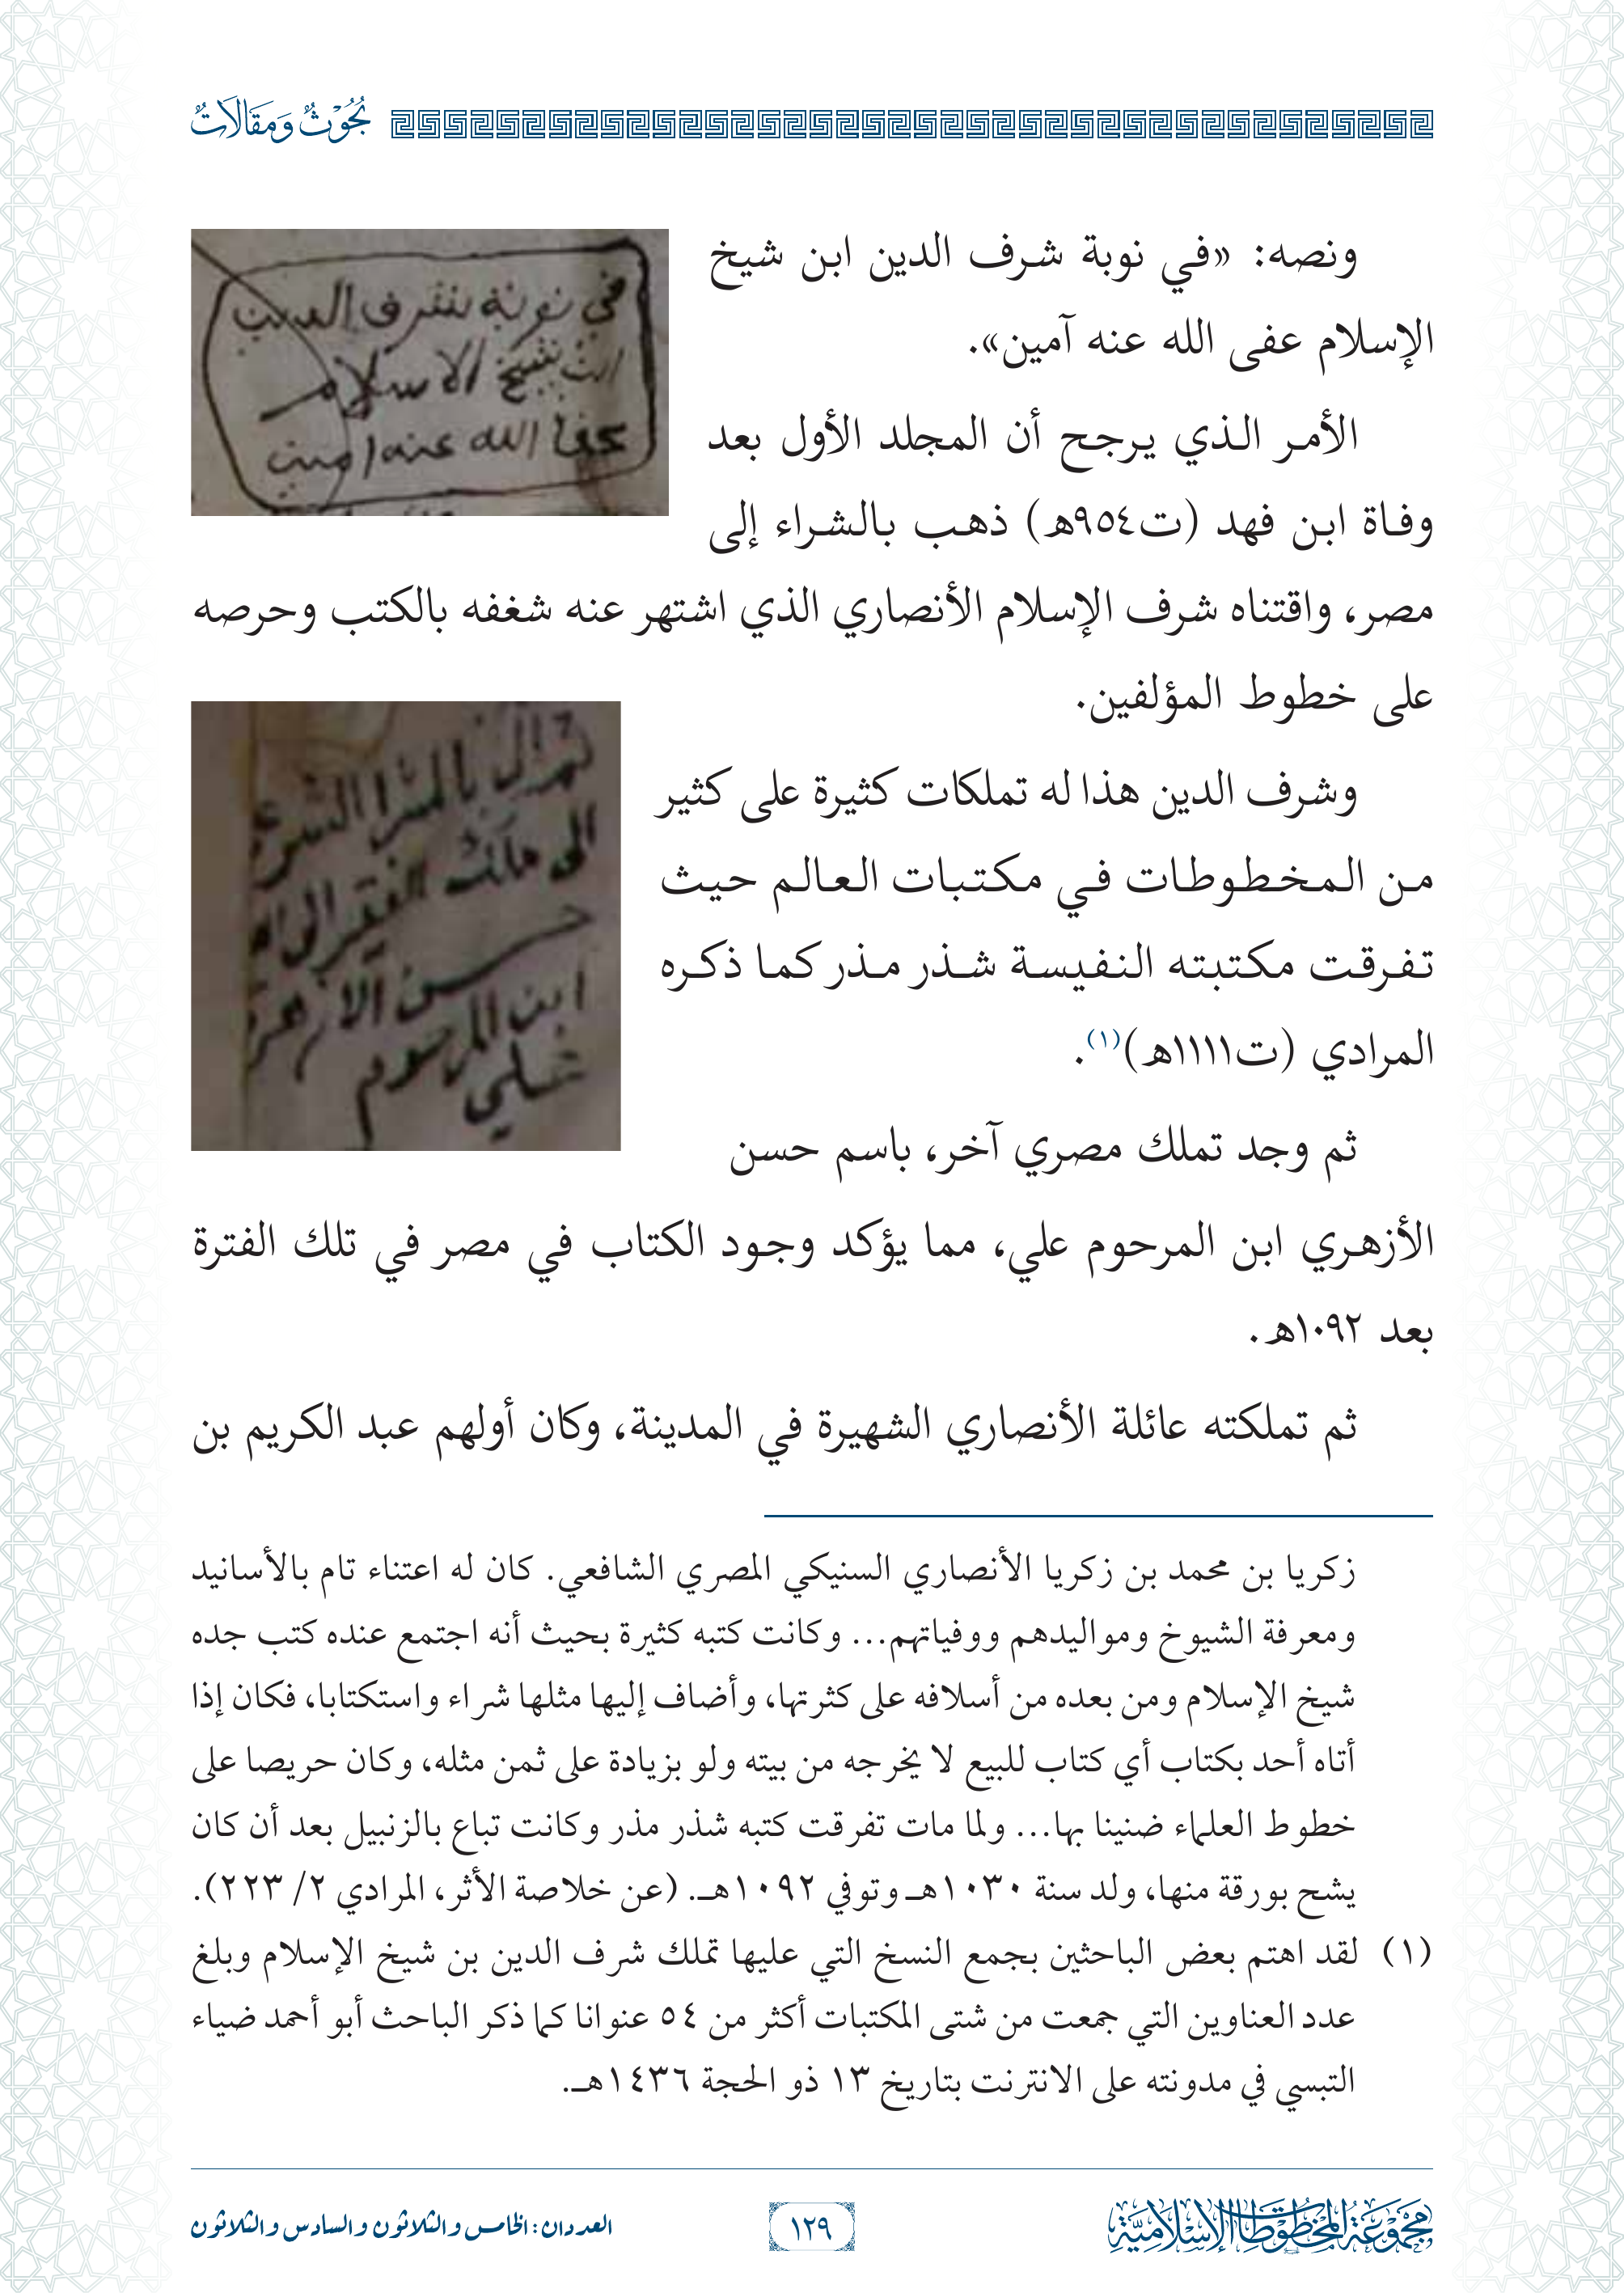 بُحُوْثٌ وَمَقَالَاتٌ
ونصه: «في نوبة شرف الدين ابن شيخ
الإسلام عفى الله عنه آمين».
في نوبة شرف الدين
ابن شيخ الاسلام
عفا الله عنه امين
الأمر الذي يرجح أن المجلد الأول بعد
وفاة ابن فهد (ت٩٥٤هـ) ذهب بالشراء إلى
مصر، واقتناه شرف الإسلام الأنصاري الذي اشتهر عنه شغفه بالكتب وحرصه
على خطوط المؤلفين.
وشرف الدين هذا له تملكات كثيرة على كثير
من المخطوطات في مكتبات العالم حيث
تفرقت مكتبته النفيسة شذر مذر كما ذكره
المرادي (ت١١١١هـ)(١).
الى ملك الفقير
حسن الازهر
ابن المرحوم
علي
ثم وجد تملك مصري آخر، باسم حسن
الأزهري ابن المرحوم علي، مما يؤكد وجود الكتاب في مصر في تلك الفترة
بعد ١٠٩٢هـ.
ثم تملكته عائلة الأنصاري الشهيرة في المدينة، وكان أولهم عبد الكريم بن
زكريا بن محمد بن زكريا الأنصاري السنيكي المصري الشافعي. كان له اعتناء تام بالأسانيد
ومعرفة الشيوخ ومواليدهم ووفياتهم... وكانت كتبه كثيرة بحيث أنه اجتمع عنده كتب جده
شيخ الإسلام ومن بعده من أسلافه على كثرتها، وأضاف إليها مثلها شراء واستكتابا، فكان إذا
أتاه أحد بكتاب أي كتاب للبيع لا يخرجه من بيته ولو بزيادة على ثمن مثله، وكان حريصا على
خطوط العلماء ضنينا بها... ولما مات تفرقت كتبه شذر مذر وكانت تباع بالزنبيل بعد أن كان
يشح بورقة منها، ولد سنة ١٠٣٠هـ وتوفي ١٠٩٢هـ. (عن خلاصة الأثر، المرادي ٢/ ٢٢٣).
(١) لقد اهتم بعض الباحثين بجمع النسخ التي عليها تملك شرف الدين بن شيخ الإسلام وبلغ
عدد العناوين التي جمعت من شتى المكتبات أكثر من ٥٤ عنوانا كما ذكر الباحث أبو أحمد ضياء
التبسي في مدونته على الانترنت بتاريخ ١٣ ذو الحجة ١٤٣٦هـ.
مَجْمُوْعَةُ الْمَخْطُوْطَاتِ الْإِسْلَامِيَّةِ
١٢٩
العددان: الخامس والثلاثون والسادس والثلاثون